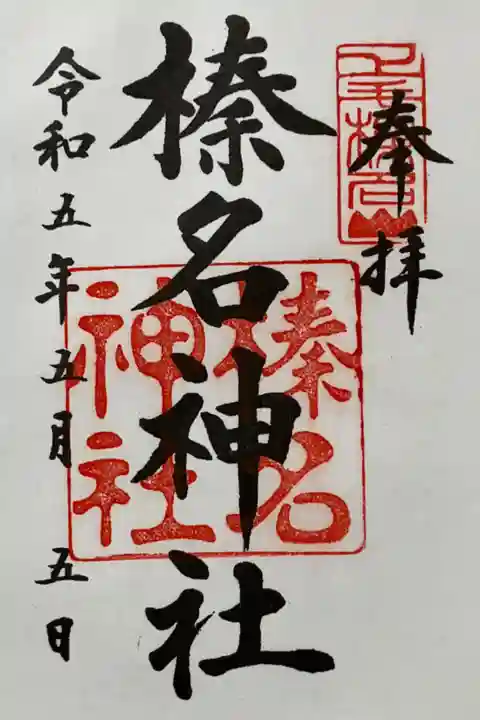 奉拝
榛名神社
令和五年五月五日
榛名
神社